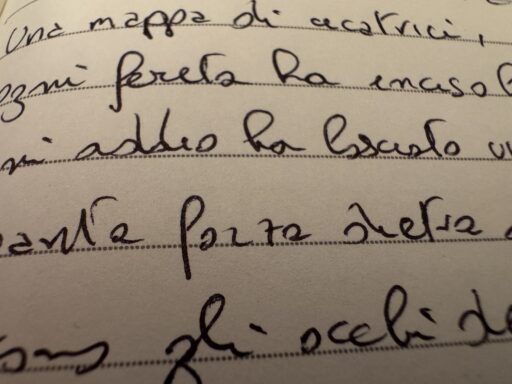 una mappa di cicatrici,
ogni ferita ha inciso
ogni addio ha lasciato un
forza dietro
gli occhi de